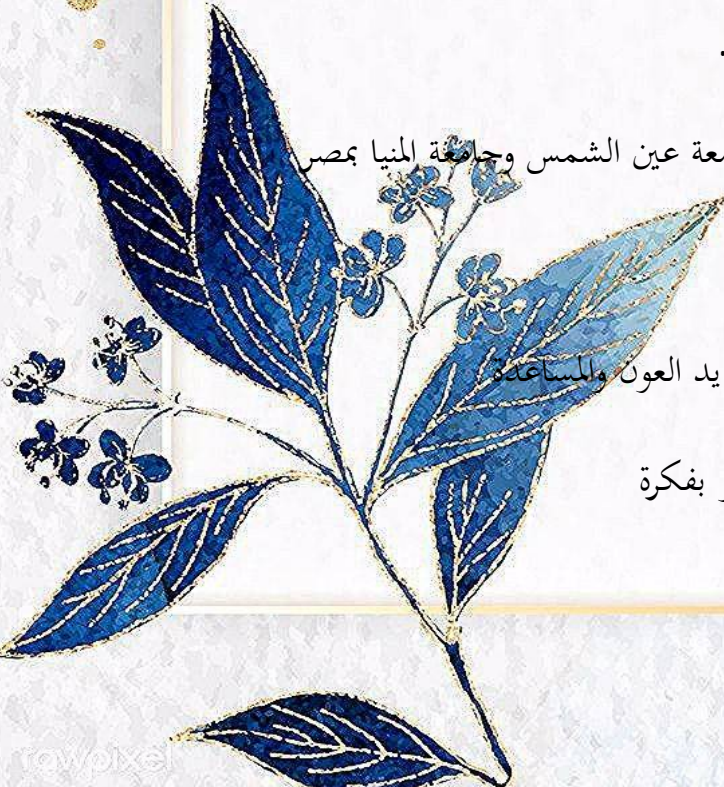 .
معة عين الشمس وجامعة المنيا بمصر
يد العون والمساعدة
بفكرة
rawpixel